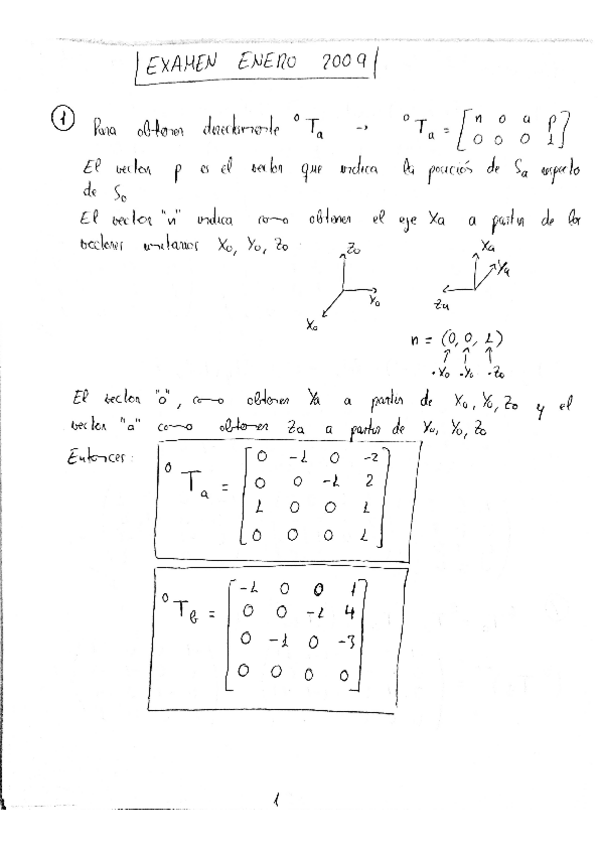 EXAMEN ENERO 2009
① Para obtener directamente ⁰Ta → ⁰Ta = [n o a p
0 0 0 1]
El vector p es el vector que indica la posición de Sa respecto
de S₀
El vector "n" indica como obtener el eje Xa a partir de los
vectores unitarios X₀, Y₀, Z₀
Z₀
Y₀
X₀
Xa
Ya
Za
n = (0, 0, 1)
·X₀ ·Y₀ ·Z₀
El vector "o", como obtener Ya a partir de X₀, Y₀, Z₀ y el
vector "a" como obtener Za a partir de X₀, Y₀, Z₀
Entonces:
⁰Ta =
0 -1 0 -2
0 0 -1 2
1 0 0 1
0 0 0 1
⁰TB =
-1 0 0 1
0 0 -1 4
0 -1 0 -3
0 0 0 0
1